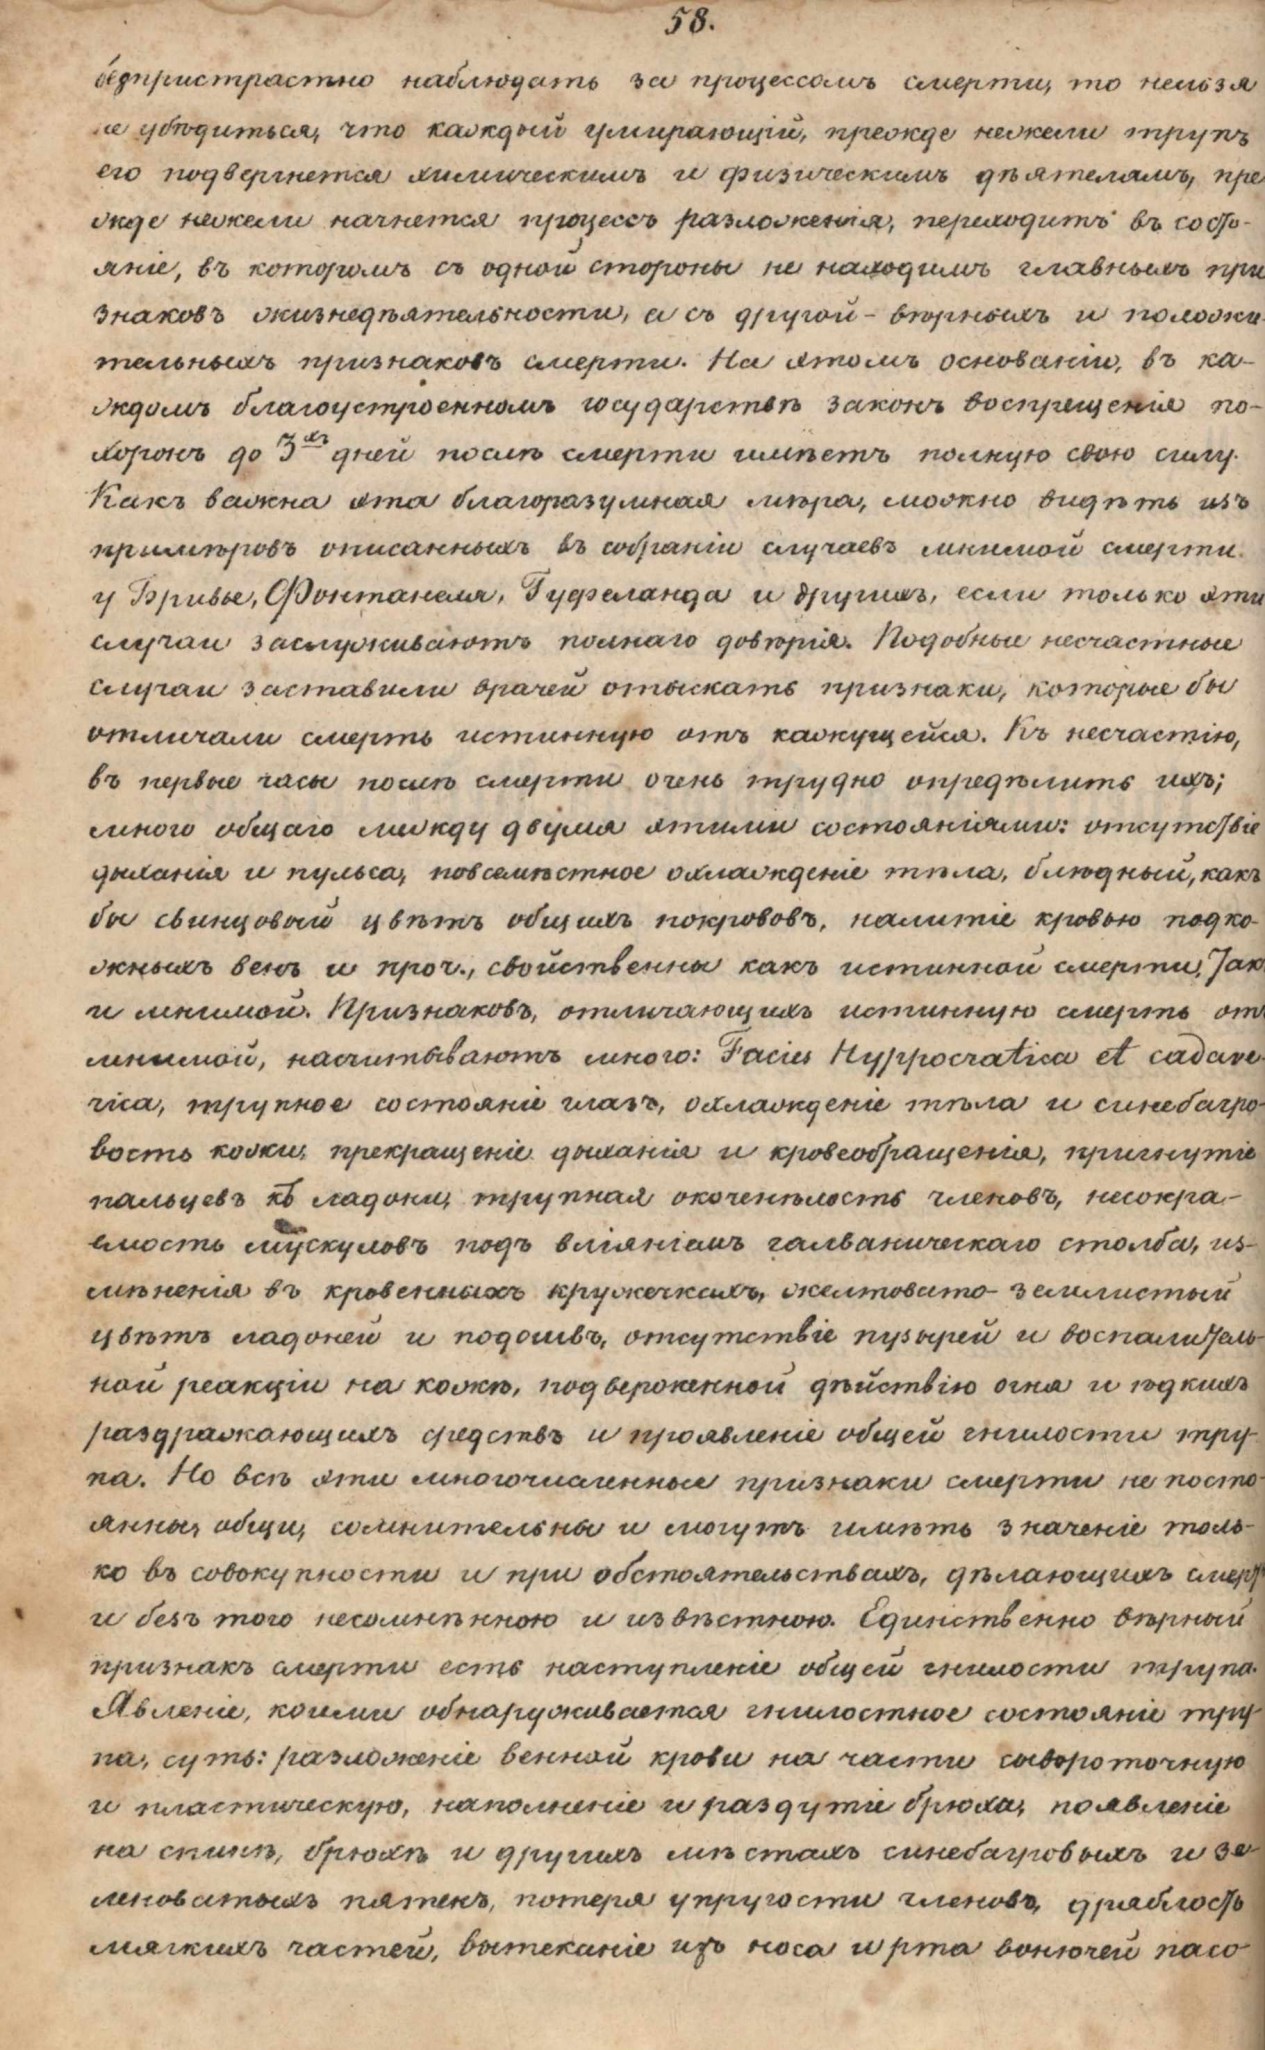 58.
безпристрастно наблюдать за процессомъ смерти, то нельзя
не убѣдиться, что каждый умирающій, прежде нежели трупъ
его подвергнется химическимъ и физическимъ дѣятелямъ, пре
жде нежели начнется процессъ разложенія, переходитъ въ состо-
яніе, въ которомъ съ одной стороны не находимъ главныхъ при
знаковъ жизнедѣятельности, а съ другой - вѣрныхъ и положи
тельныхъ признаковъ смерти. На этомъ основаніи, въ ка-
ждомъ благоустроенномъ государствѣ законъ воспрещенія по-
хоронъ до 3хъ дней послѣ смерти имѣетъ полную свою силу.
Какъ важна эта благоразумная мѣра, можно видѣть изъ
примѣровъ описанныхъ въ собраніи случаевъ мнимой смерти
у Бривье, Фонтанеля, Гуфеланда и другихъ, если только эти
случаи заслуживаютъ полнаго довѣрія. Подобные несчастные
случаи заставили врачей отыскать признаки, которые бы
отличали смерть истинную отъ кажущейся. Къ несчастію,
въ первые часы послѣ смерти очень трудно опредѣлить ихъ;
много общаго между двумя этими состояніями: отсутствіе
дыханія и пульса, повсемѣстное охлажденіе тѣла, блѣдный, какъ
бы свинцовый цвѣтъ общихъ покрововъ, налитіе кровью подко-
жныхъ венъ и проч., свойственны какъ истинной смерти, так
и мнимой. Признаковъ, отличающихъ истинную смерть от
мнимой, насчитываютъ много: Facies Hyppocratica et cadave-
rica, трупное состояніе глазъ, охлажденіе тѣла и синебагро-
вость кожи, прекращеніе дыханія и кровеобращенія, пригнутіе
пальцевъ къ ладони, трупная окоченѣлость членовъ, несокра-
емость мускуловъ подъ вліяніемъ гальваническаго столба, из-
мѣненія въ кровенныхъ кружечкахъ, желтовато-землистый
цвѣтъ ладоней и подошвъ, отсутствіе пузырей и воспалитель-
ной реакціи на кожѣ, подверженной дѣйствію огня и ѣдкихъ
раздражающихъ средствъ и проявленіе общей гнилости тру-
па. Но всѣ эти многочисленные признаки смерти не посто-
янны, общи, сомнительны и могутъ имѣть значеніе толь-
ко въ совокупности и при обстоятельствахъ, дѣлающихъ смерть
и безъ того несомнѣнною и извѣстною. Единственно вѣрный
признакъ смерти есть наступленіе общей гнилости трупа.
Явленіе, коими обнаруживается гнилостное состояніе тру-
па, суть: разложеніе венной крови на части сывороточную
и пластическую, наполненіе и раздутіе брюха, появленіе
на спинѣ, брюхѣ и другихъ мѣстахъ синебагровыхъ и зе
леноватыхъ пятенъ, потеря упругости членовъ, дряблость
мягкихъ частей, вытеканіе изъ носа и рта вонючей пасо